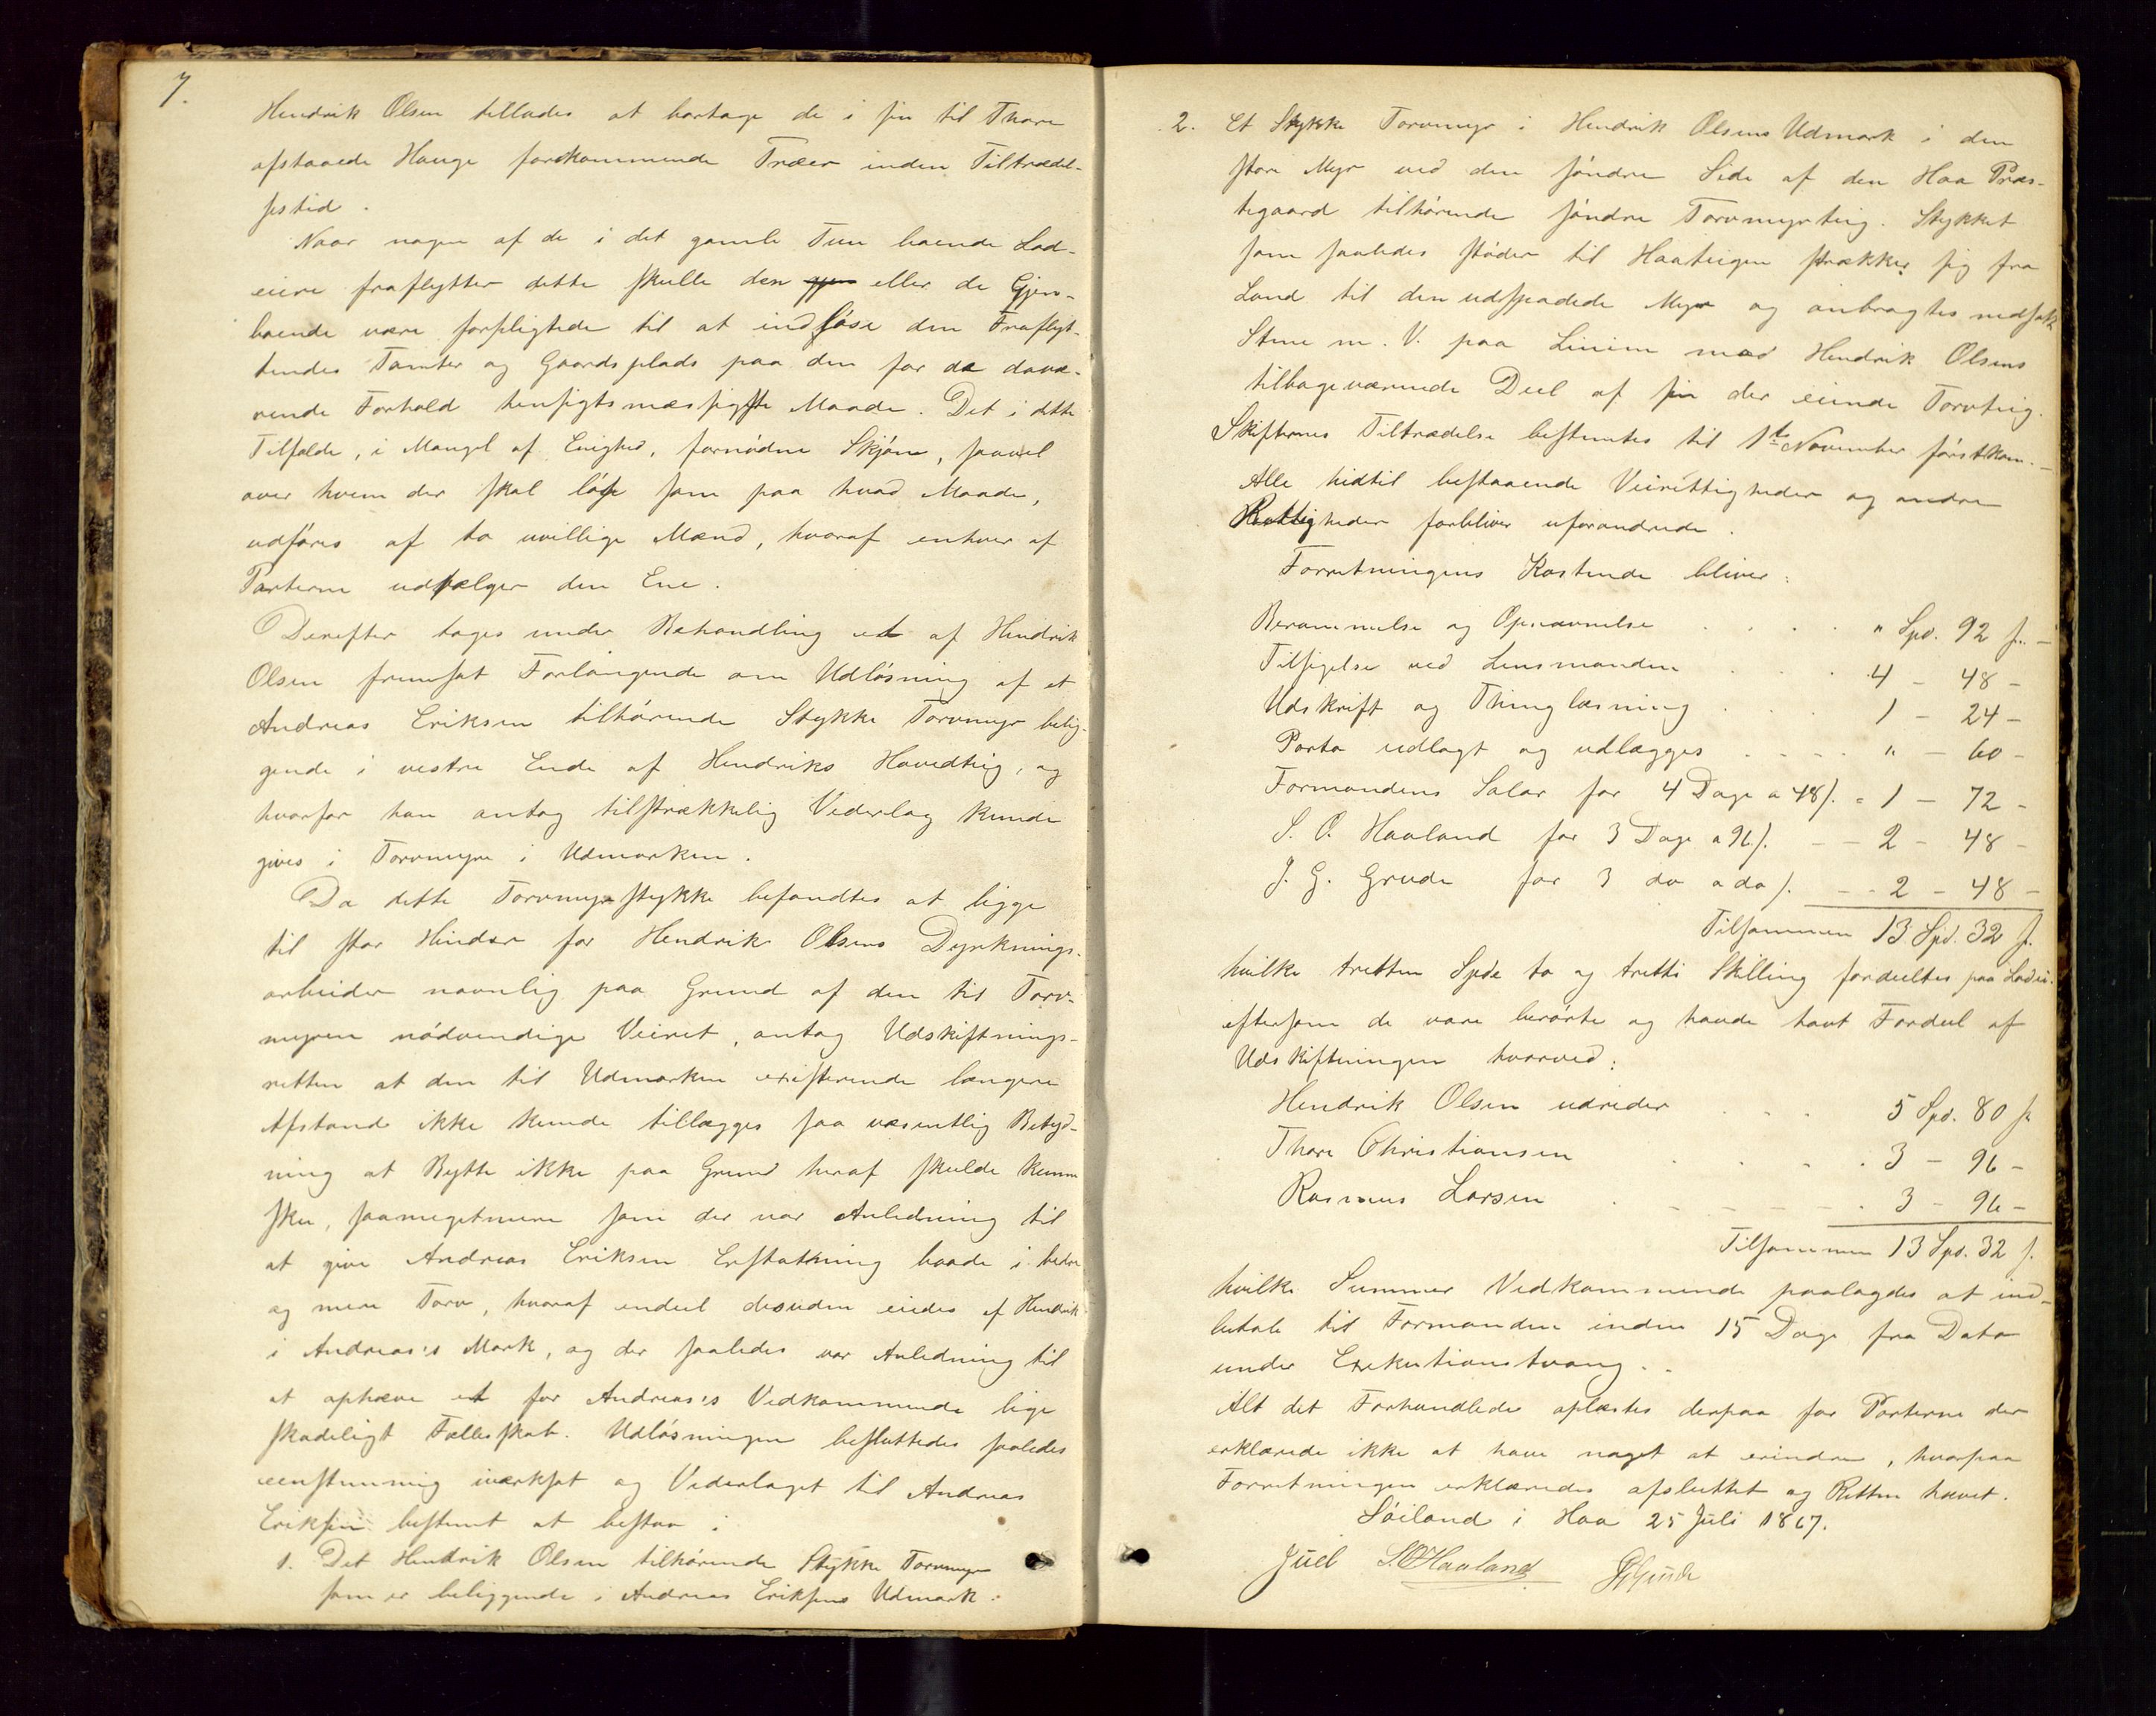 7.
Hendrik Olsen tillades at bortage de i sin til Thore
afstaaede Hauge forekommende Træer inden Tiltrædel-
sestid.
Naar nogen af de i det gamle Tun boende Lod-
eiere fraflytter dette skulle den eller de Gjen-
boende være forpligtede til at indløse den Fraflyt-
tendes Tomter og Gaardsplads paa den for de davæ-
rende Forhold hensigtsmæssigste Maade. Det i dette
Tilfælde, i Mangel af Enighed, fornødne Skjøn, saavel
over hvem der skal løse som paa hvad Maade,
udføres af to uvillige Mænd, hvoraf enhver af
Parterne udvælger den Ene.
Derefter toges under Behandling et af Hendrik
Olsen fremsat Forlangende om Udløsning af et
Andreas Eriksen tilhørende Stykke Torvmyr belig-
gende i vestre Ende af Hendriks Hovedteig, og
hvorfor han antog tilstrækkelig Vederlag kunde
gives i Torvmyre i Udmarken.
Da dette Torvmyrstykke befandtes at ligge
til stor Hinder for Hendrik Olsens Dyrknings-
arbeider navnlig paa Grund af den til Torv-
myren nødvendige Veiret, antog Udskiftnings-
retten at den til Udmarken existerende længere
Afstand ikke kunde tillægges saa væsentlig Betyd-
ning at Bytte ikke paa Grund heraf skulde kunne
ske, saameget mere som der var Anledning til
at give Andreas Eriksen Erstatning baade i bedre
og mere Torv, hvoraf endeel desuden eiedes af Hendrik
i Andreas's Mark, og der saaledes var Anledning til
at ophæve et for Andreas's Vedkommende lige
skadeligt Fællesskab. Udløsningen besluttedes saaledes
eenstemmig iværksat og Vederlaget til Andreas
Eriksen bestemt at bestaa i
1. Det Hendrik Olsen tilhørende Stykke Torvmyr
som er beliggende i Andreas Eriksens Udmark.
2. Et Stykke Torvmyr i Hendrik Olsens Udmark i den
store Myr ved den søndre Side af den Haa Præs-
tegaard tilhørende søndre Torvmyrteig. Stykket
som saaledes støder til Haateigen strækker sig fra
Land til den udspadede Myr og anbragtes nedsatte
Stene m. V. paa Linien mod Hendrik Olsens
tilbageværende Deel af sin der eiende Torvteig.
Skifternes Tiltrædelse bestemtes til 1ste November førstkom.-
Alle hidtil bestaaende Veirettigheder og andre
Rettigheder forbliver uforandrede.
Forretningens Kostende bliver:
Berammelse og Opnævnelse . . . . " Spd. 92 s. -
Tilsigelse ved Lensmanden . . . . 4 - 48 -
Udskrift og Thinglæsning . . . 1 - 24 -
Porto udlagt og udlægges . . . . " - 60 -
Formandens Salar for 4 Dage a 48 s. = 1 - 72 -
S. O. Haaland for 3 Dage a 96 s. - - 2 - 48 -
J. G. Grude for 3 do a do s. - - 2 - 48 -
Tilsammen 13 Spd. 32 s.
hvilke tretten Spde to og tretti Skilling fordeeltes paa Lodei.
eftersom de vare berørte og havde havt Fordeel af
Udskiftningen hvorved:
Hendrik Olsen udreder . . . 5 Spd. 80 s
Thore Christiansen . . . . 3 - 96 -
Rasmus Larsen . - - - - . 3 - 96 -
Tilsammen 13 Spd. 32 s.
hvilke Summer Vedkommende paalagdes at ind-
betale til Formanden inden 15 Dage fra Dato
under Exekutionstvang.
Alt det Forhandlede oplæstes derpaa for Parterne der
erklærede ikke at have noget at erindre, hvorpaa
Forretningen erklæredes afsluttet og Retten hævet.
Søiland i Haa 25 Juli 1867.
Juel S. O. Haaland J G Grude